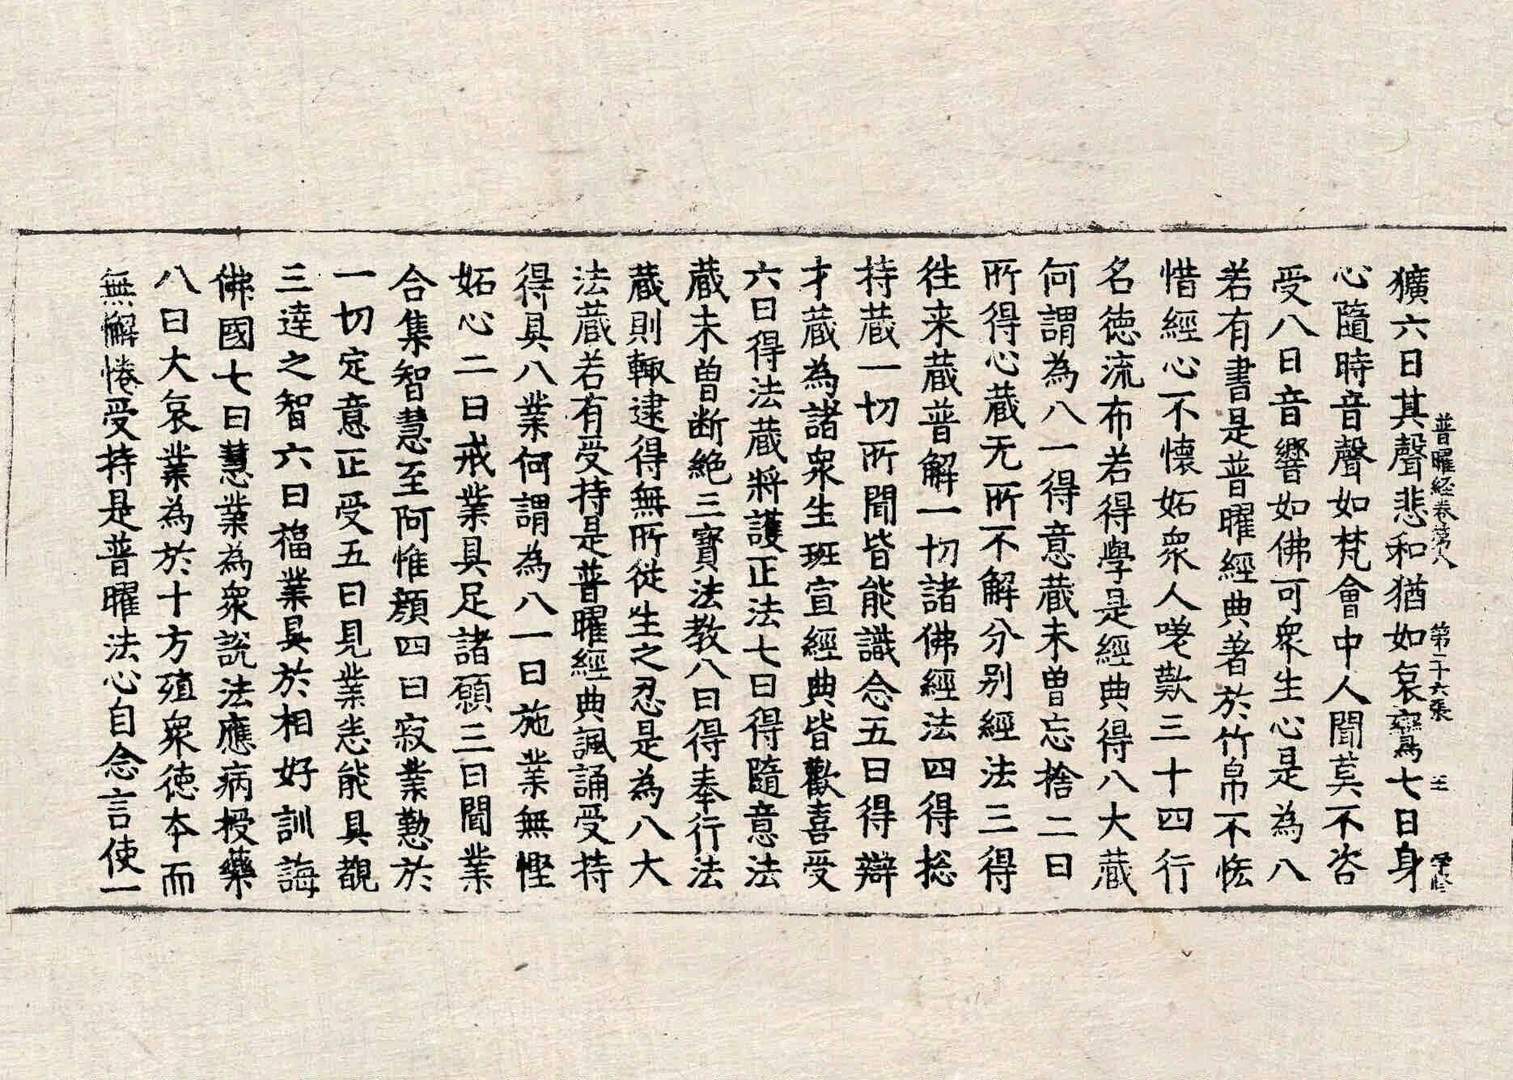 普曜經卷第八 第二十六張
獷六曰其聲悲和猶如哀鸞七曰身
心隨時音聲如梵會中人聞莫不咨
受八曰音響如佛可衆生心是為八
若有書是普曜經典著於竹帛不悋
惜經心不懷妬衆人嗟歎三十四行
名德流布若得學是經典得八大藏
何謂為八一得意藏未曾忘捨二曰
所得心藏无所不解分別經法三得
往来藏普解一切諸佛經法四得揔
持藏一切所聞皆能識念五曰得辯
才藏為諸衆生班宣經典皆歡喜受
六曰得法藏將護正法七曰得隨意法
藏未曾断絶三寶法教八曰得奉行法
藏則輙逮得無所從生之忍是為八大
法藏若有受持是普曜經典諷誦受持
得具八業何謂為八一曰施業無慳
妬心二曰戒業具足諸願三曰聞業
合集智慧至阿惟顏四曰寂業懃於
一切定意正受五曰見業恙能具觀
三達之智六曰福業具於相好訓誨
佛國七曰慧業為衆說法應病授藥
八曰大哀業為於十方殖衆德本而
無懈惓受持是普曜法心自念言使一